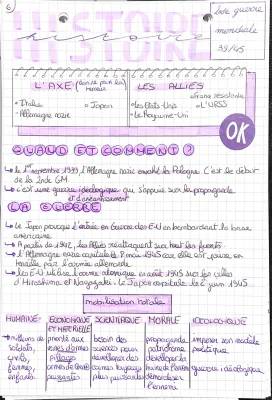 6
HISTOIRE
histoire
2nde guerre
mondiale
39/45
L'AXE
LES ALLIÉS
• Italie
• Japon
• Allemagne nazie
• les États-Unis
• L'URSS
• Le Royaume-Uni
OK
QUAND ET COMMENT ?
le 1er septembre 1939 l'Allemagne nazie envahit la Pologne. C'est le début
de la 2nde GM.
c'est une guerre idéologique qui s'appuie sur la propagande
et d'anéantissement
LA GUERRE
Le Japon provoque l'entrée en guerre des EU en bombardant la base
américaine.
A partir de 1942, les Alliés attaquent sur tout les fronts.
l'Allemagne nazie capitule le 8 mai 1945 car elle est
par l'armée allemande
les EU utilise l'arme atomique en août 1945 sur les villes
d'Hiroshima et Nagazaki. Le Japon capitule le 2 1945
mobilisation totale
HUMAINE
ÉCONOMIQUE
ET MATÉRIELLE
SCIENTIFIQUE
MORALE
IDÉOLOGIQUE
millions de
soldats,
civils,
femmes,
enfants
priorité aux
pillages
puissants
besoin des
sciences pour
développer des
armes
plus puissantes
propagande
patriotisme
développer la
haine de l'ennemi
l'ennemi
imposer son modèle
politique
guerre idéologique